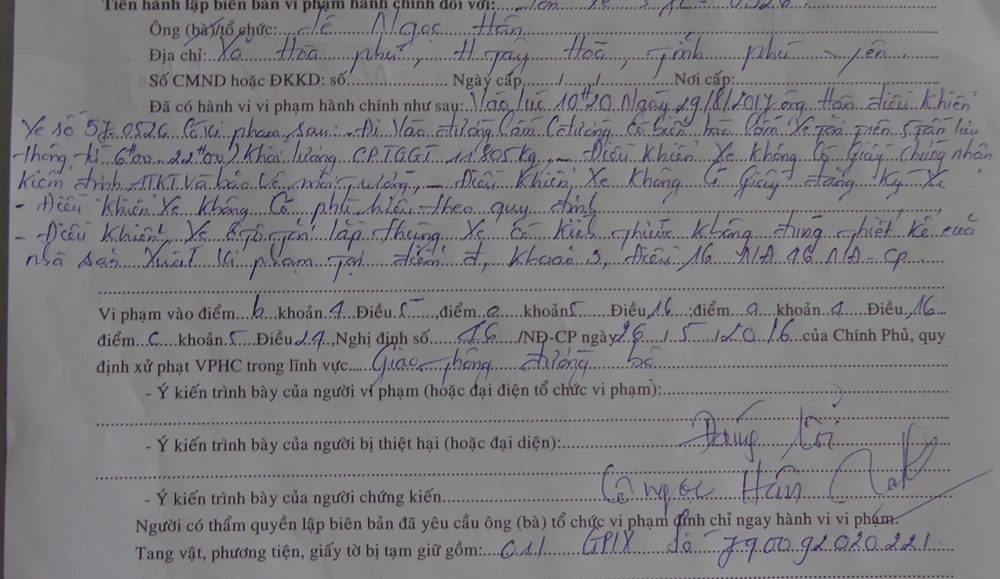 Tiến hành lập biên bản vi phạm hành chính đối với:
Ông (bà)/tổ chức: Lê Ngọc Hân
Địa chỉ: Xã Hòa Phú, H Tây Hoà, tỉnh phú yên
Số CMND hoặc ĐKKD: số: Ngày cấp / / Nơi cấp:
Đã có hành vi vi phạm hành chính như sau: Vào lúc 10h20 Ngày 29/8/2017 ông Hân điều khiển
Xe số 57-0526 Có vi phạm sau: - Đi Vào đường Cấm (đường Có biển báo Cấm Xe tải trên 5 tấn lưu
thông từ 6h00 - 22h00) Khối lượng CPTGGT 11.805kg, - Điều Khiển Xe Không Có Giấy Chứng nhận
kiểm định ATKT Và bảo Vệ môi trường, - Điều Khiển Xe Không Có Giấy đăng Ký Xe
- Điều Khiển Xe Không Có phù hiệu theo quy định
- Điều Khiển Xe ô tô tải lắp thùng Xe có Kích thước Không đúng thiết kế của
nhà Sản Xuất Vi phạm tại điểm đ, Khoản 3, Điều 16 NĐ 46 NĐ-CP
Vi phạm vào điểm b khoản 4 Điều 5, điểm a khoản 5 Điều 16; điểm a khoản 4 Điều 16
điểm c khoản 5 Điều 24, Nghị định số 46 /NĐ-CP ngày 26 / 5 / 2016 của Chính Phủ, quy
định xử phạt VPHC trong lĩnh vực Giao thông đường bộ
- Ý kiến trình bày của người vi phạm (hoặc đại diện tổ chức vi phạm):
- Ý kiến trình bày của người bị thiệt hại (hoặc đại diện): Đúng lỗi
- Ý kiến trình bày của người chứng kiến Lê ngọc Hân
Người có thẩm quyền lập biên bản đã yêu cầu ông (bà) tổ chức vi phạm đình chỉ ngay hành vi vi phạm.
Tang vật, phương tiện, giấy tờ bị tạm giữ gồm: 01 GPLX số 790092020221